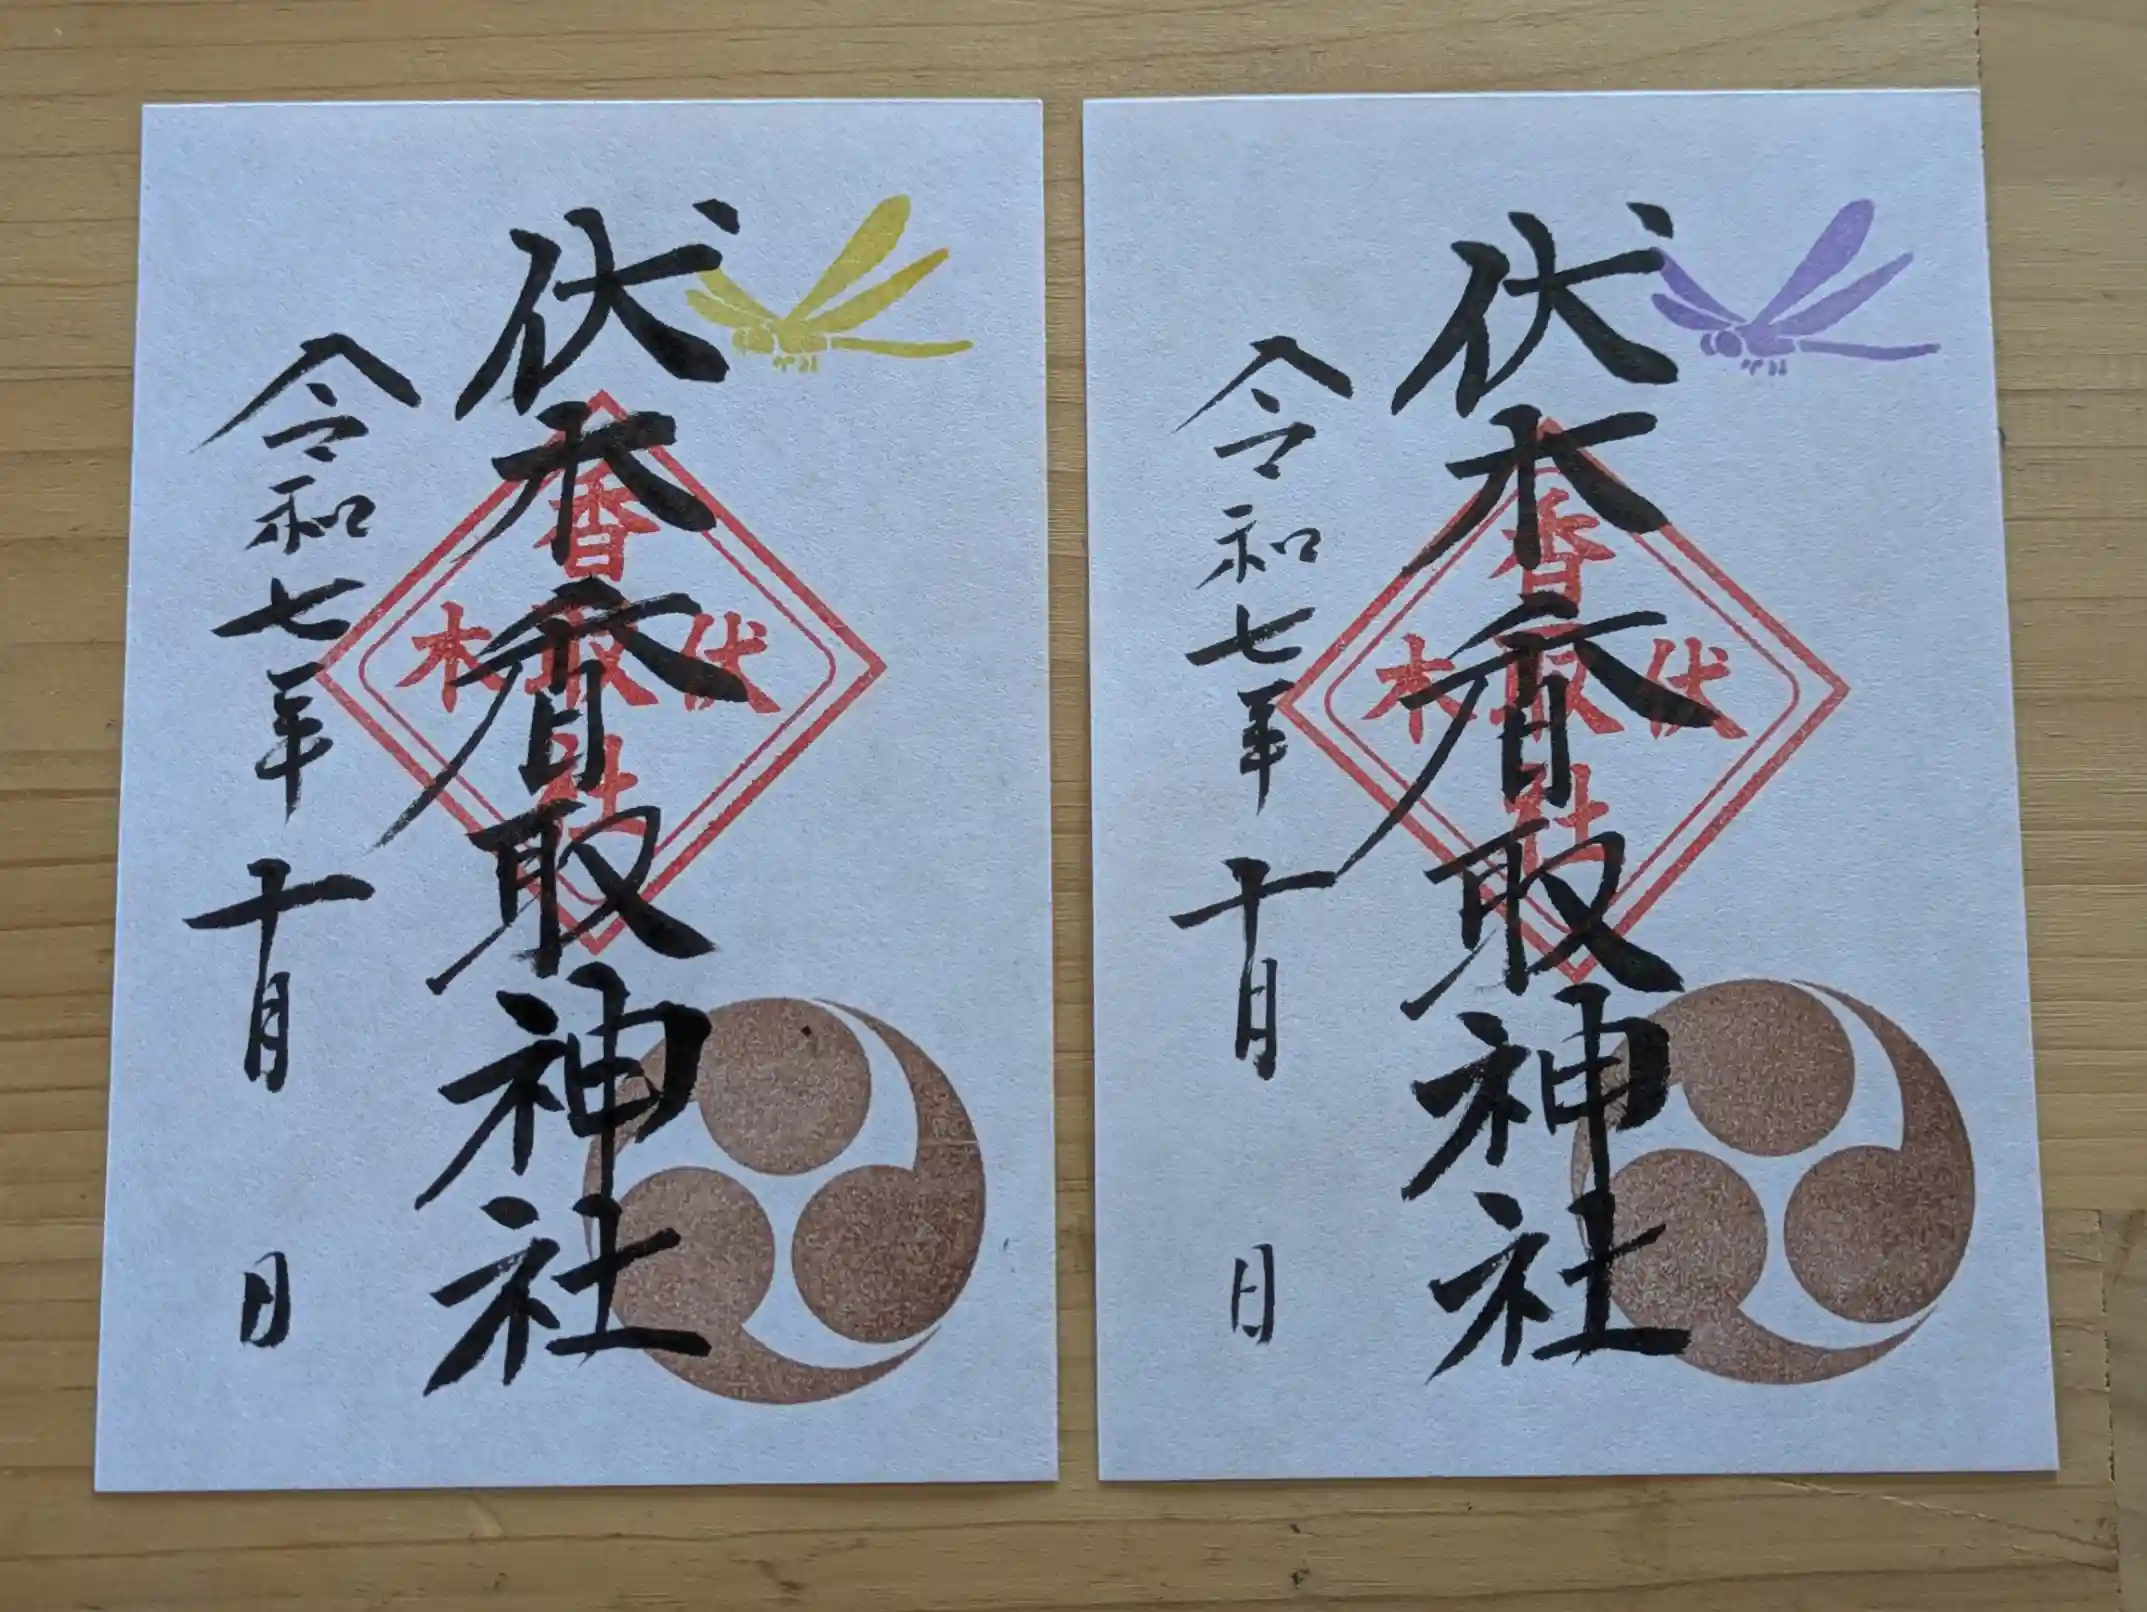 伏木香取神社
令和七年十月 日
香
伏取木
社
伏木香取神社
令和七年十月 日
香
伏取木
社